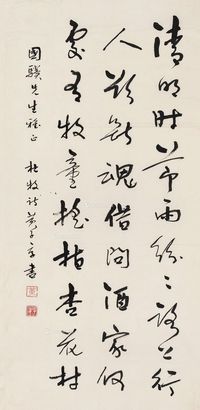 清明時節雨紛〻路上行
人欲斷魂借問酒家何
處有牧童搖指杏花村
國驥先生雅正
杜牧詩 書